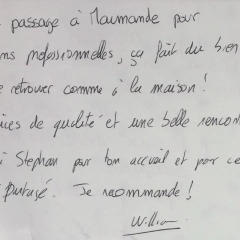 passage à Maumande pour
ns professionnelles, ça fait du bien
e retrouver comme à la maison !
ices de qualité et une belle rencon
i Stephan par ton accueil et par ce
partagé. Je recommande !
William